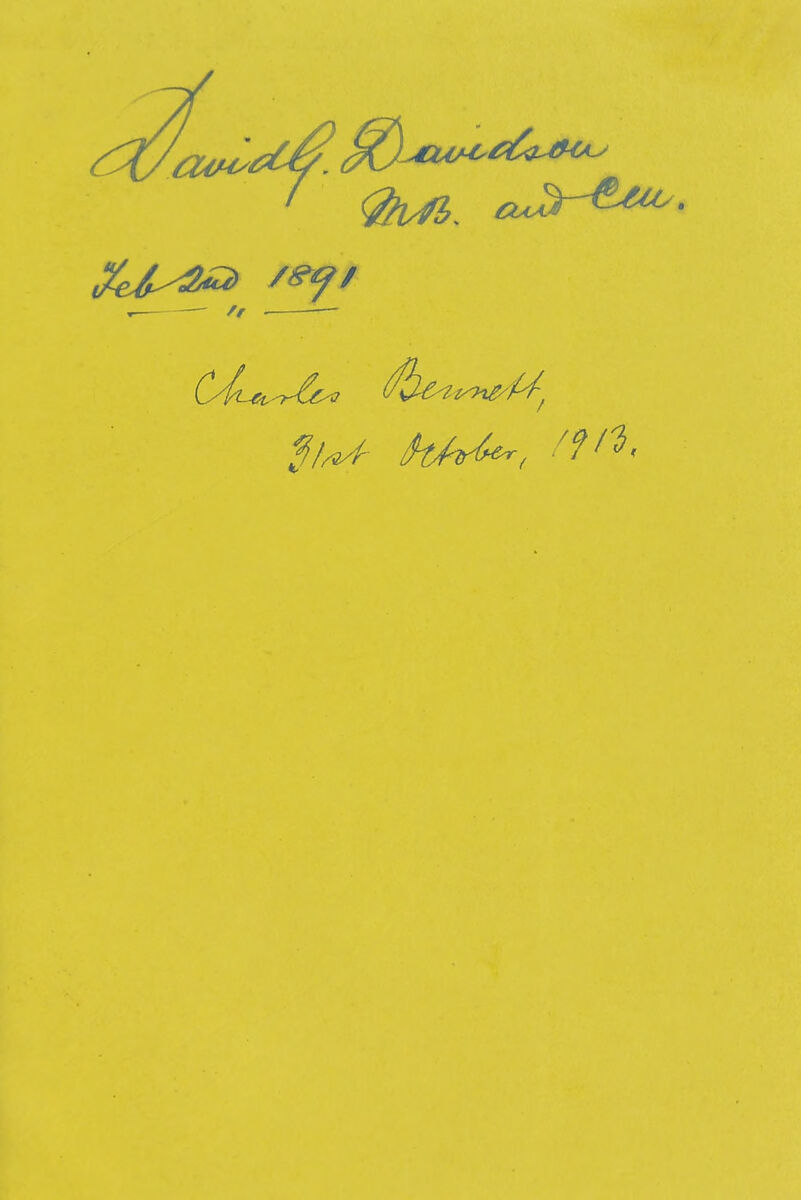 David G. Davidson
MB. and CM.
Feb 2nd 1891
"
Charles Bennett,
31st October, 1913.